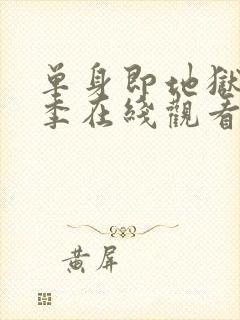 單身即地獄
季在綫觀看
黃屏